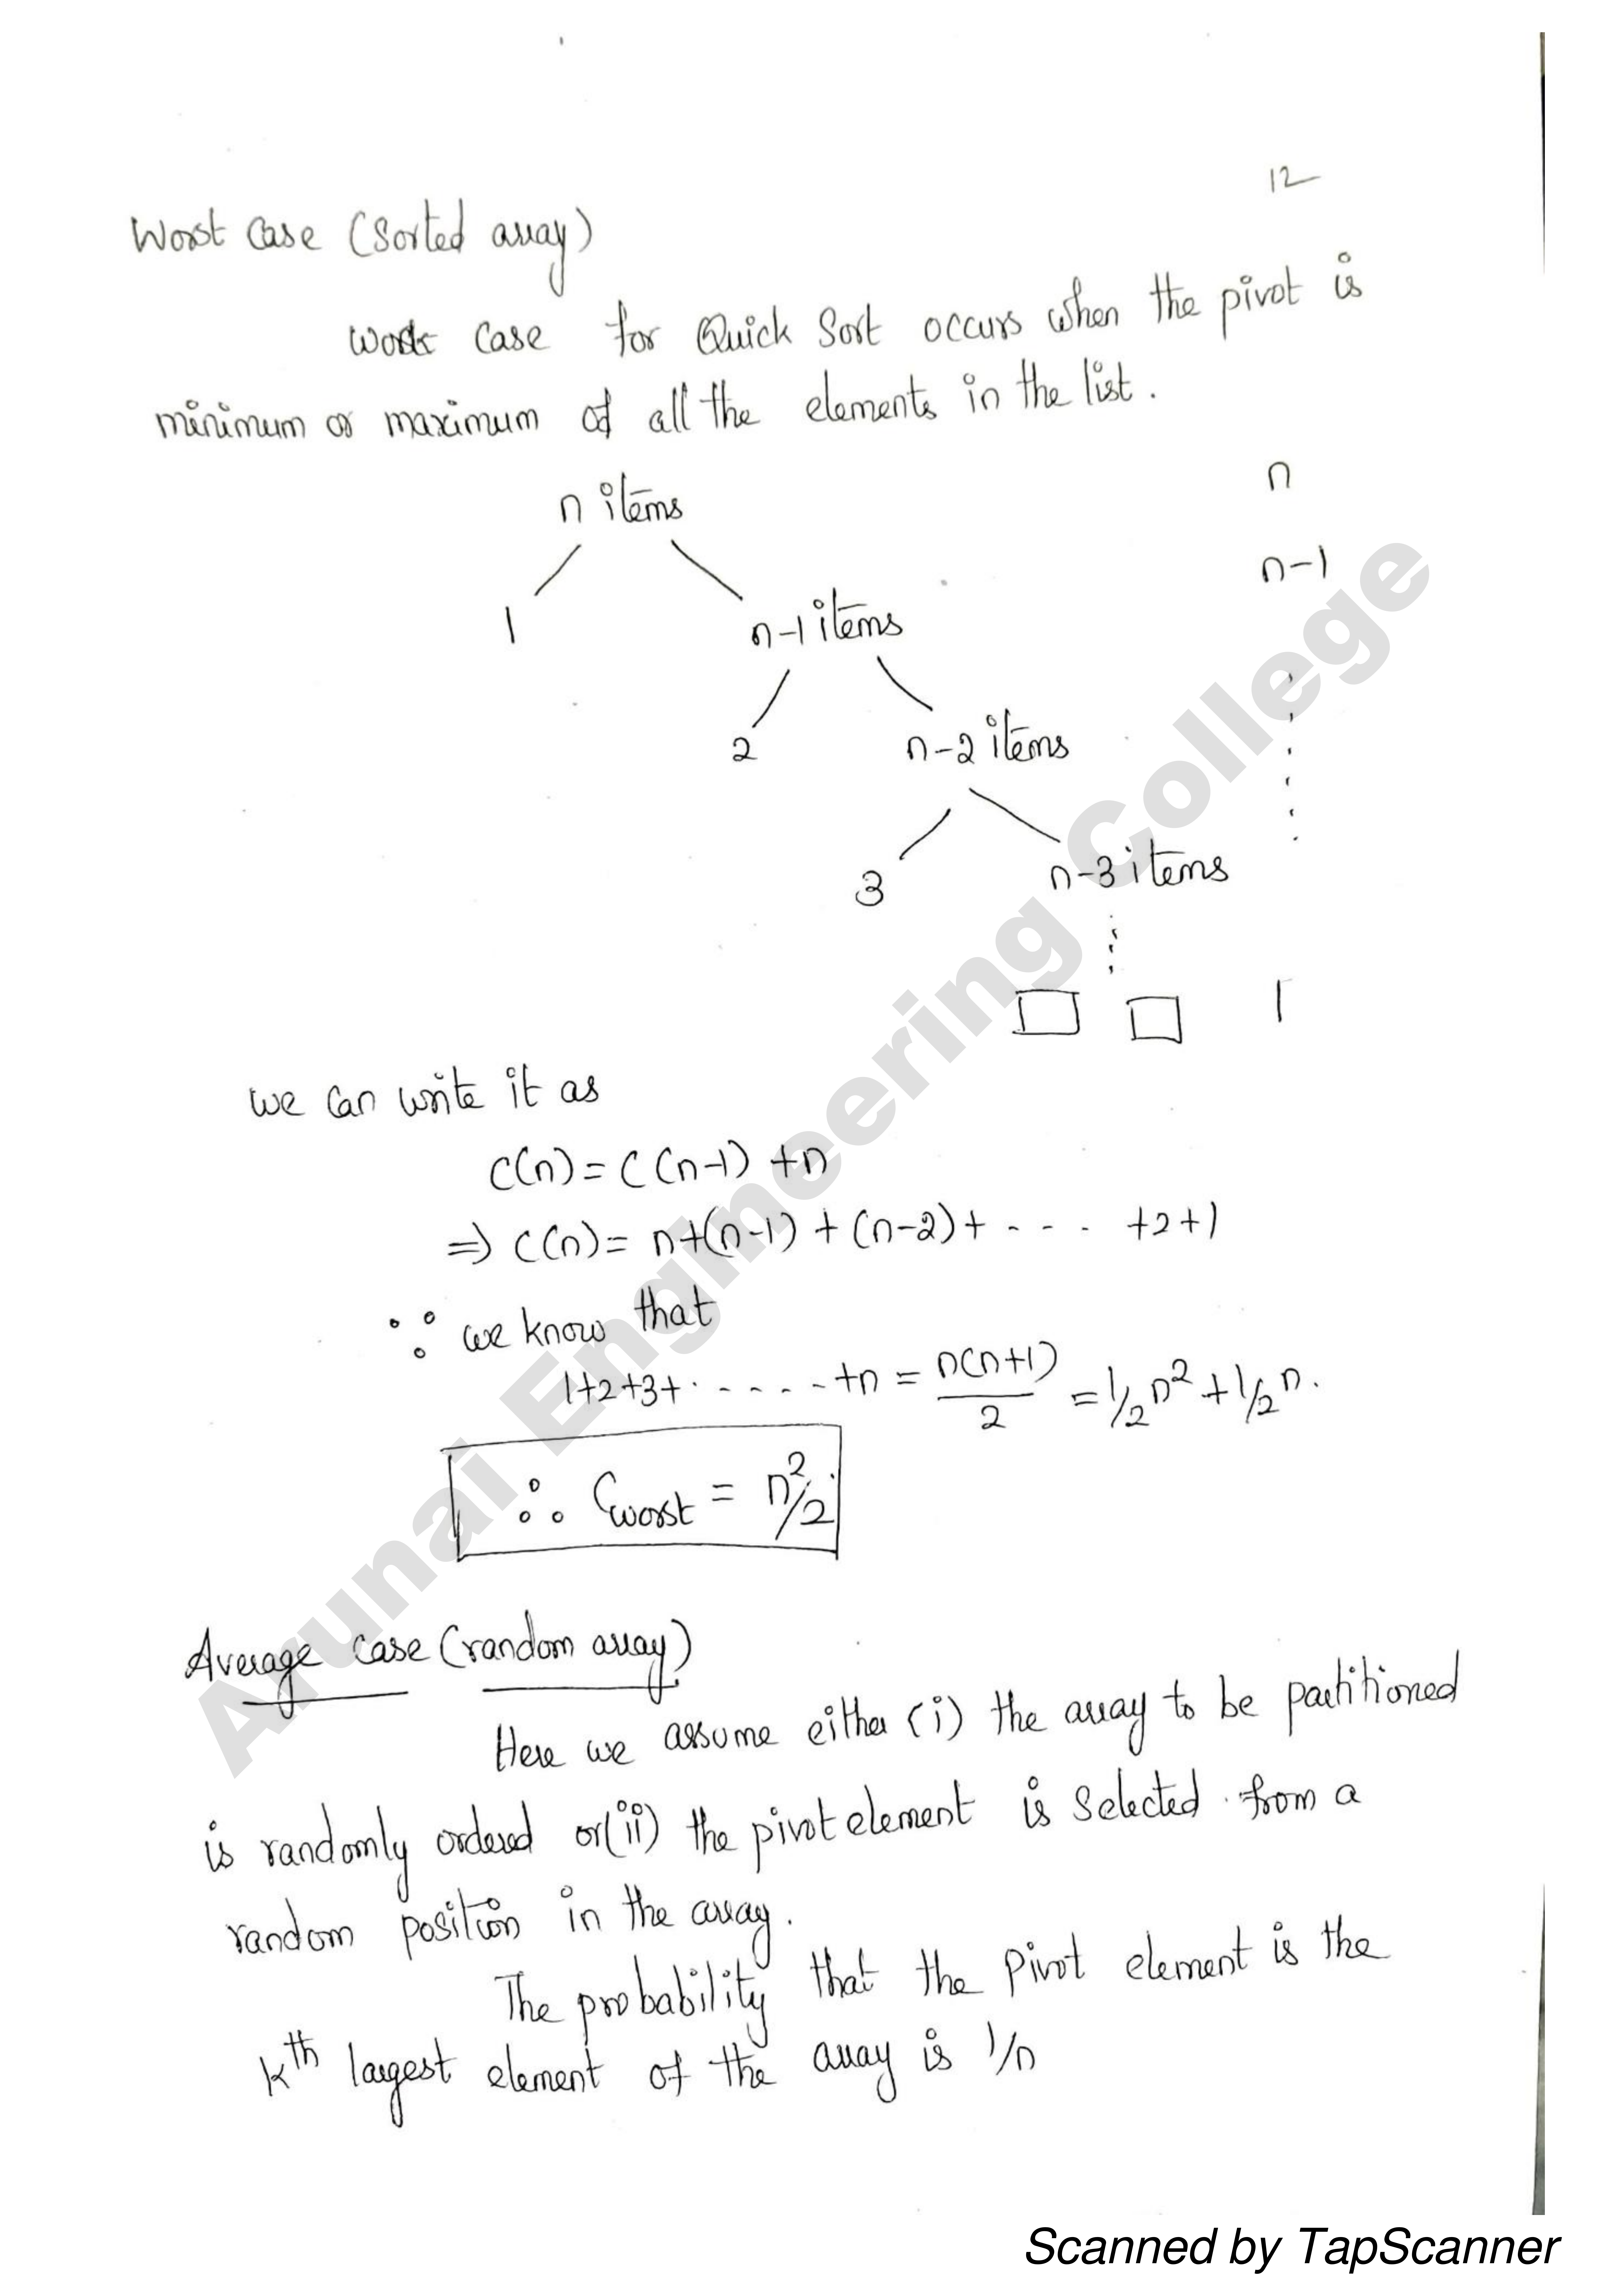 12
Worst Case (Sorted array)
Worst Case for Quick Sort occurs when the pivot is
minimum or maximum of all the elements in the list.
n items n
1 n-1 items n-1
2 n-2 items
3 n-3 items
1
we can write it as
C(n) = C(n-1) + n
⇒ C(n) = n+(n-1) + (n-2) + - - - +2+1
∵ we know that
1+2+3+ - - - - - +n = n(n+1)/2 = 1/2 n² + 1/2 n.
∴ Cworst = n²/2
Average case (random array)
Here we assume either (i) the array to be partitioned
is randomly ordered or (ii) the pivot element is Selected from a
random position in the array.
The probability that the Pivot element is the
kth largest element of the array is 1/n
Arunai Engineering College
Scanned by TapScanner